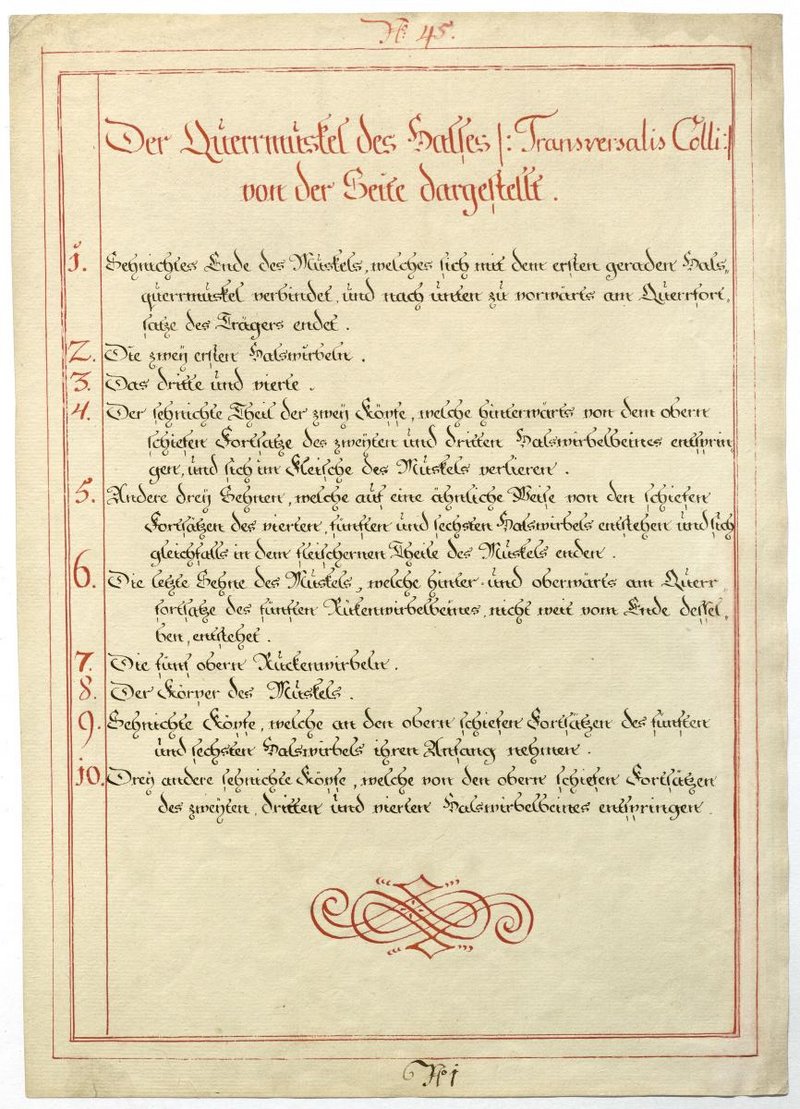 N: 45.
Der Querrmuskel des Halses |: Transversalis Colli :|
von der Seite dargestellt .
1. Sehnichtes Ende des Muskels, welches sich mit dem ersten geraden Hals„
querrmuskel verbindet, und nach unten zu vorwärts am Querrfort„
satze des Trägers endet .
2. Die zwey ersten Halswirbeln .
3. Das dritte und vierte .
4. Der sehnichte Theil der zwey Köpfe, welche hinterwärts von dem obern
schiefen Fortsatze des zweyten und dritten Halswirbelbeines entsprin
gen, und sich im Fleische des Muskels verlieren .
5. Andere drey Sehnen, welche auf eine ähnliche Weise von den schiefen
Fortsätzen des vierten, fünften und sechsten Halswirbels entstehen und sich
gleichfalls in dem fleischernen Theile des Muskels enden .
6. Die letzte Sehne des Muskels, welche hinter- und oberwärts am Querr
fortsatze des fünften Rückenwirbelbeines, nicht weit vom Ende dessel„
ben, entstehet .
7. Die fünf obern Rückenwirbeln .
8. Der Körper des Muskels .
9. Sehnichte Köpfe, welche an den obern schiefen Fortsätzen des fünften
und sechsten Halswirbels ihren Anfang nehmen .
10. Drey andere sehnichte Köpfe, welche von den obern schiefen Fortsätzen
des zweyten, dritten und vierten Halswirbelbeines entspringen .
No 1